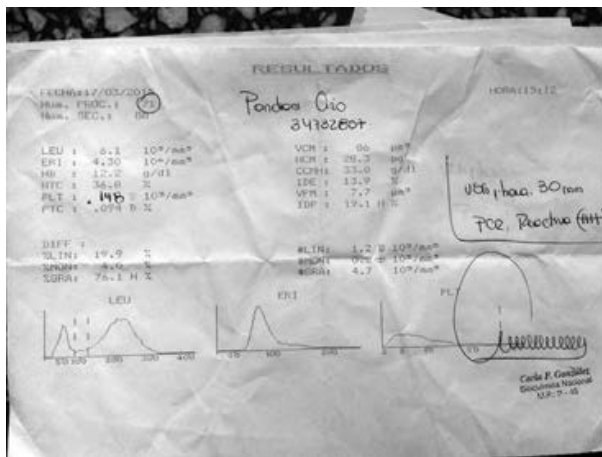 RESULTADOS
FECHA:17/03/201
HORA:15:12
Num. PROC.: 71
Num. SEC.: 
34732807
LEU : 6.1 10³/mm³
ERI : 4.30 10⁶/mm³
HB : 12.2 g/dl
HTC : 36.8 %
PLT : .148 10³/mm³
PTC : .094 %
VCM : 86 µm³
HCM : 28.3 pg
CCMH: 33.0 g/dl
IDE : 13.9 %
VPM : 7.7 µm³
IDP : 19.1 H %
hora. 30 mm
PCR. Reactiva
DIFF :
%LIN: 19.9 %
%MON: 4.0 %
%GRA: 76.1 H %
#LIN: 1.2 10³/mm³
#MON: 10³/mm³
#GRA: 4.7 10³/mm³
LEU
ERI
PLT
50 100 200 300 400
Carla F. González
Bioquímica Nacional